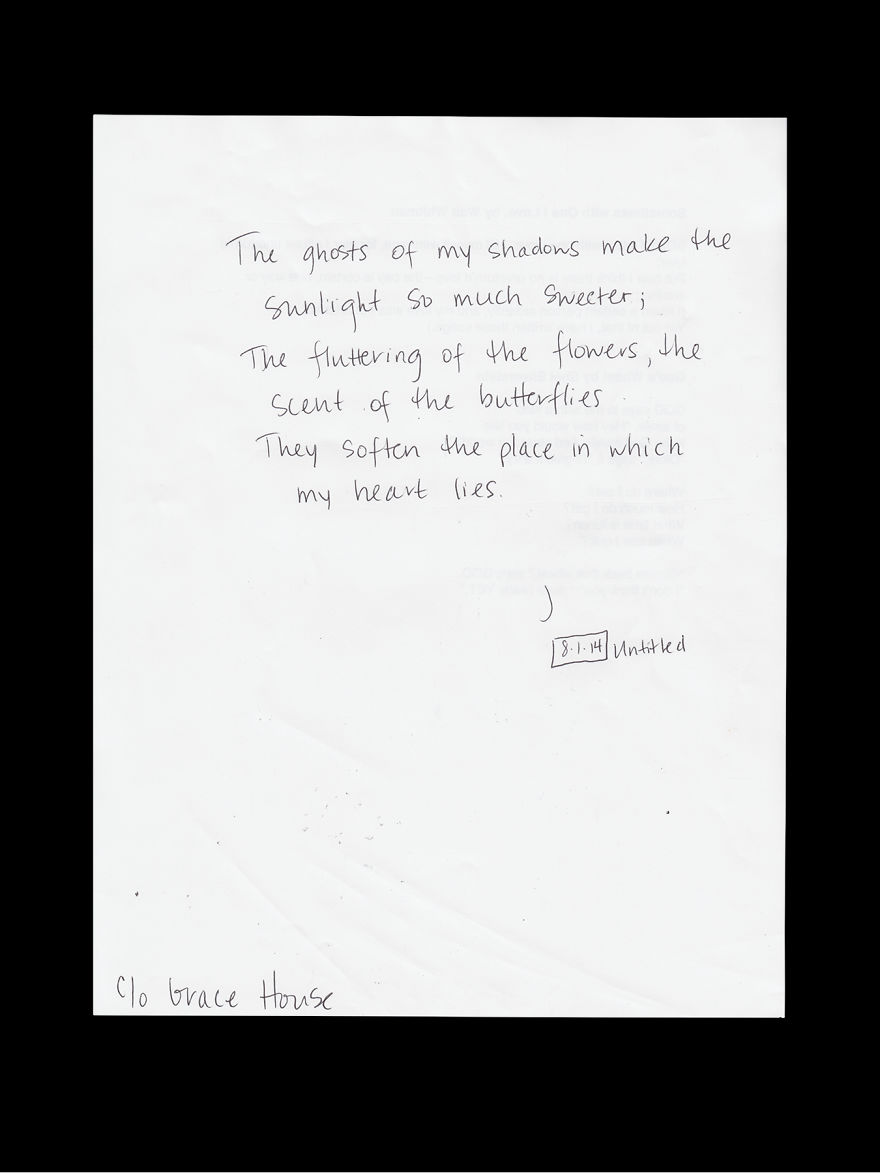 The ghosts of my shadows make the
sunlight so much sweeter;
The fluttering of the flowers, the
scent of the butterflies
They soften the place in which
my heart lies.
)
8.1.14 Untitled
c/o Grace House